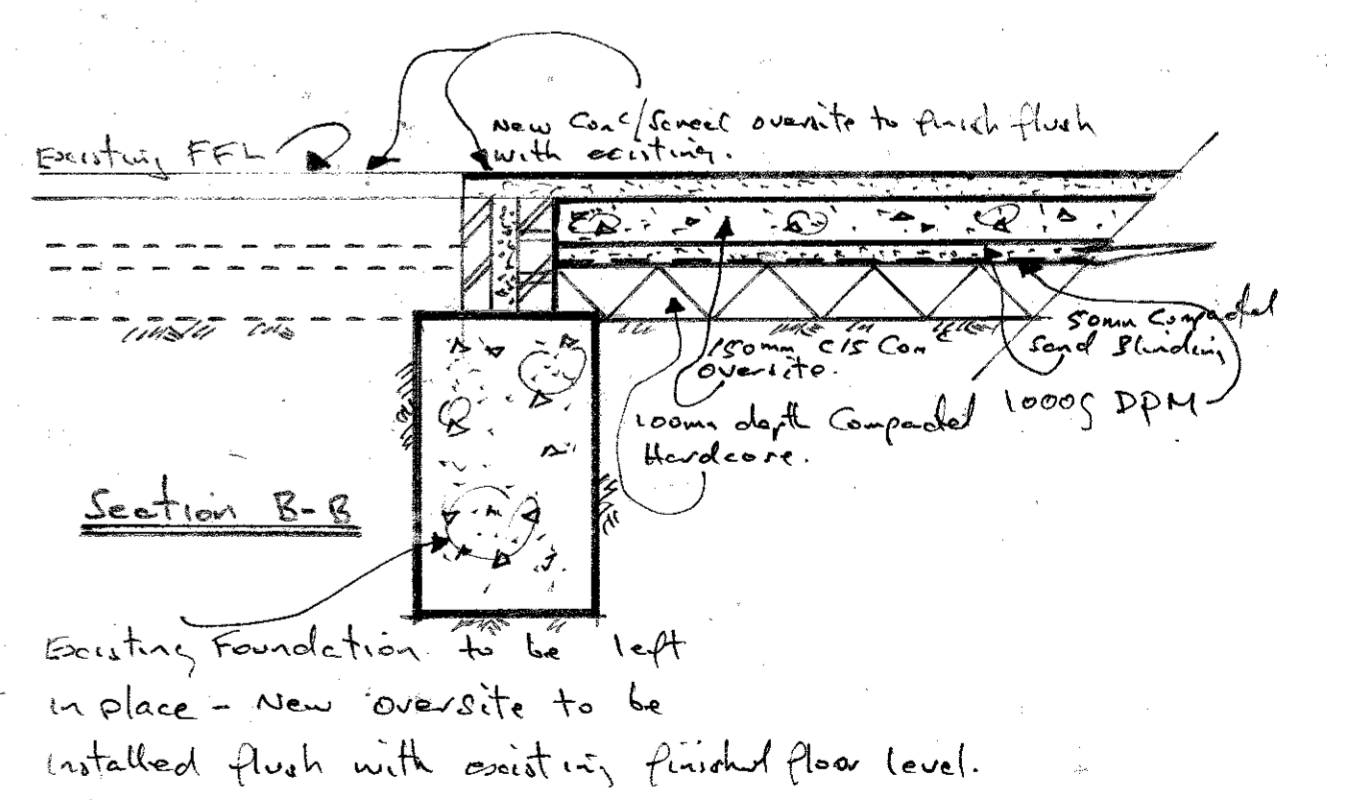 New Conc/Screed oversite to finish flush
with existing.
Existing FFL
50mm Compacted
Sand Blinding
150mm C15 Conc
oversite.
1000g DPM
100mm depth Compacted
Hardcore.
Section B-B
Existing Foundation to be left
in place - New oversite to be
installed flush with existing finished floor level.